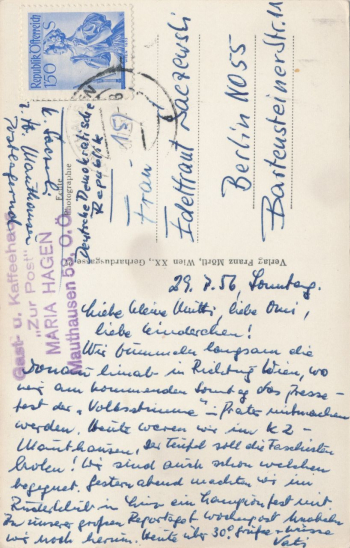 Republik Österreich
1.50 S
Deutsche Demokratische
Republik
Echte
Photographie
Frau
Edeltraut Laczewski
Berlin NO55
Bartensteinerstr. 11
Gast- u. Kaffeehaus
"Zur Post"
MARIA HAGEN
Mauthausen 55, O.Ö.
Verlag Franz Mörtl, Wien XX., Gerhardusgasse
29.7.56, Sonntag.
Liebe kleine Mutti, liebe Omi,
liebe Kinderchen!
Wir bummeln langsam die
Donau hinab in Richtung Wien, wo
wir am kommenden Sonntag das Presse-
fest der "Volksstimme" - Prater mitmachen
werden. Heute waren wir im KZ-
Mauthausen, Der Teufel soll die Faschisten
holen! Wir sind auch schon welchen
begegnet. Gestern abend machten wir im
Ruderklub in Linz ein Lampionfest mit
Zu unserer großen Reportage
wir noch herum. Heute über 30°
Vati